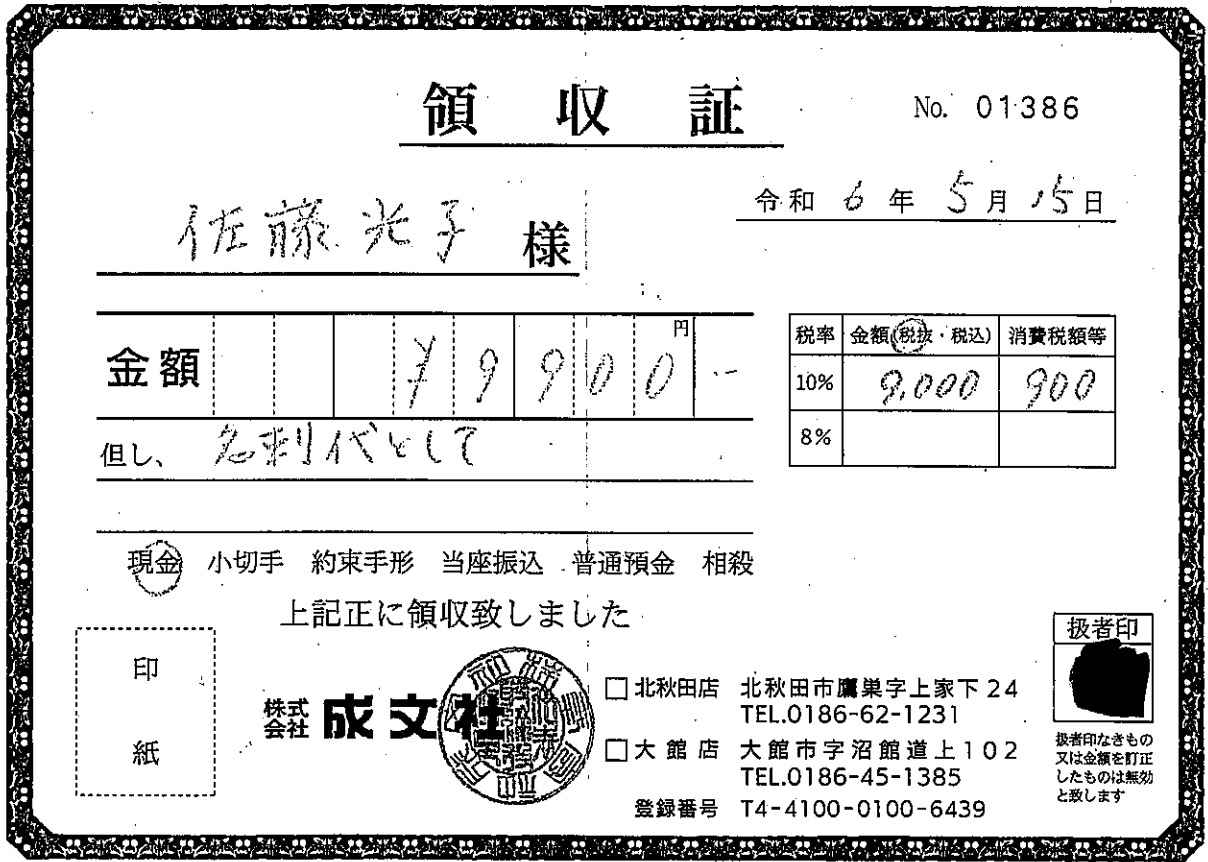 領収証
No. 01386
令和 6年 5月 15日
佐藤光子 様
金額 ¥9900円
税率 金額(税抜・税込) 消費税額等
10% 9,000 900
8%
但し、名刺代として
現金 小切手 約束手形 当座振込 普通預金 相殺
上記正に領収致しました
印紙
株式会社 成文社
□北秋田店 北秋田市鷹巣字上家下24
TEL.0186-62-1231
□大館店 大館市字沼館道上102
TEL.0186-45-1385
登録番号 T4-4100-0100-6439
扱者印
扱者印なきもの
又は金額を訂正
したものは無効
と致します